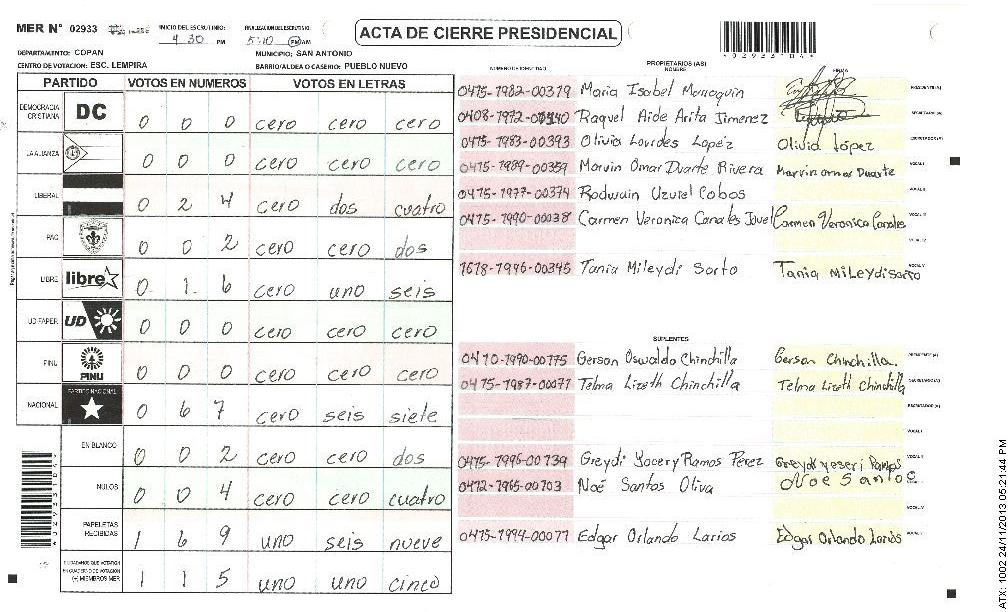 MER N° 02933
INICIO DEL ESCRUTINIO: 4 30 PM
FINALIZACION DEL ESCRUTINIO: 5:10 PM AM
ACTA DE CIERRE PRESIDENCIAL
*02933*
DEPARTAMENTO: COPAN
MUNICIPIO: SAN ANTONIO
CENTRO DE VOTACION: ESC. LEMPIRA
BARRIO/ALDEA O CASERIO: PUEBLO NUEVO
PARTIDO VOTOS EN NUMEROS VOTOS EN LETRAS
DEMOCRACIA CRISTIANA DC 0 0 0 cero cero cero
LA ALIANZA 0 0 0 cero cero cero
LIBERAL 0 2 4 cero dos cuatro
PAC 0 0 2 cero cero dos
LIBRE libre 0 1 6 cero uno seis
UD FAPER UD 0 0 0 cero cero cero
PINU PINU 0 0 0 cero cero cero
NACIONAL PARTIDO NACIONAL 0 6 7 cero seis siete
EN BLANCO 0 0 2 cero cero dos
NULOS 0 0 4 cero cero cuatro
PAPELETAS RECIBIDAS 1 6 9 uno seis nueve
CIUDADANOS QUE VOTARON EN CUADERNO DE VOTACION (+) MIEMBROS MER 1 1 5 uno uno cinco
PROPIETARIOS (AS)
NUMERO DE IDENTIDAD NOMBRE FIRMA
0475-1982-00379 Maria Isabel PRESIDENTE (A)
0408-1972-00340 Raquel Aide Arita Jimenez SECRETARIO (A)
0475-1983-00393 Olivia Lourdes Lopéz Olivia López ESCRUTADOR (A)
0475-1989-00359 Marvin Omar Duarte Rivera Marvin omar Duarte VOCAL I
0475-1977-00374 Cobos VOCAL II
0475-1990-00038 Carmen Veronica Canales Carmen Veronica Canales VOCAL III
VOCAL IV
1618-1996-00345 Tania Mileydi Sorto Tania Mileydi Sorto VOCAL V
SUPLENTES
0410-1990-00775 Gerson Oswaldo Chinchilla Gerson Chinchilla PRESIDENTE (A)
0475-1987-00077 Telma Lizeth Chinchilla Telma Lizeth Chinchilla SECRETARIO (A)
ESCRUTADOR (A)
VOCAL I
0475-1996-00739 Greydi Yocery Ramos Pérez Greydi yeseri Ramos VOCAL II
0472-1965-00703 Noé Santos Oliva Noe Santo VOCAL III
VOCAL IV
0475-1994-00077 Edgar Orlando Larios Edgar Orlando Larios VOCAL V
ATX: 1002 24/11/2013 05:21:44 PM